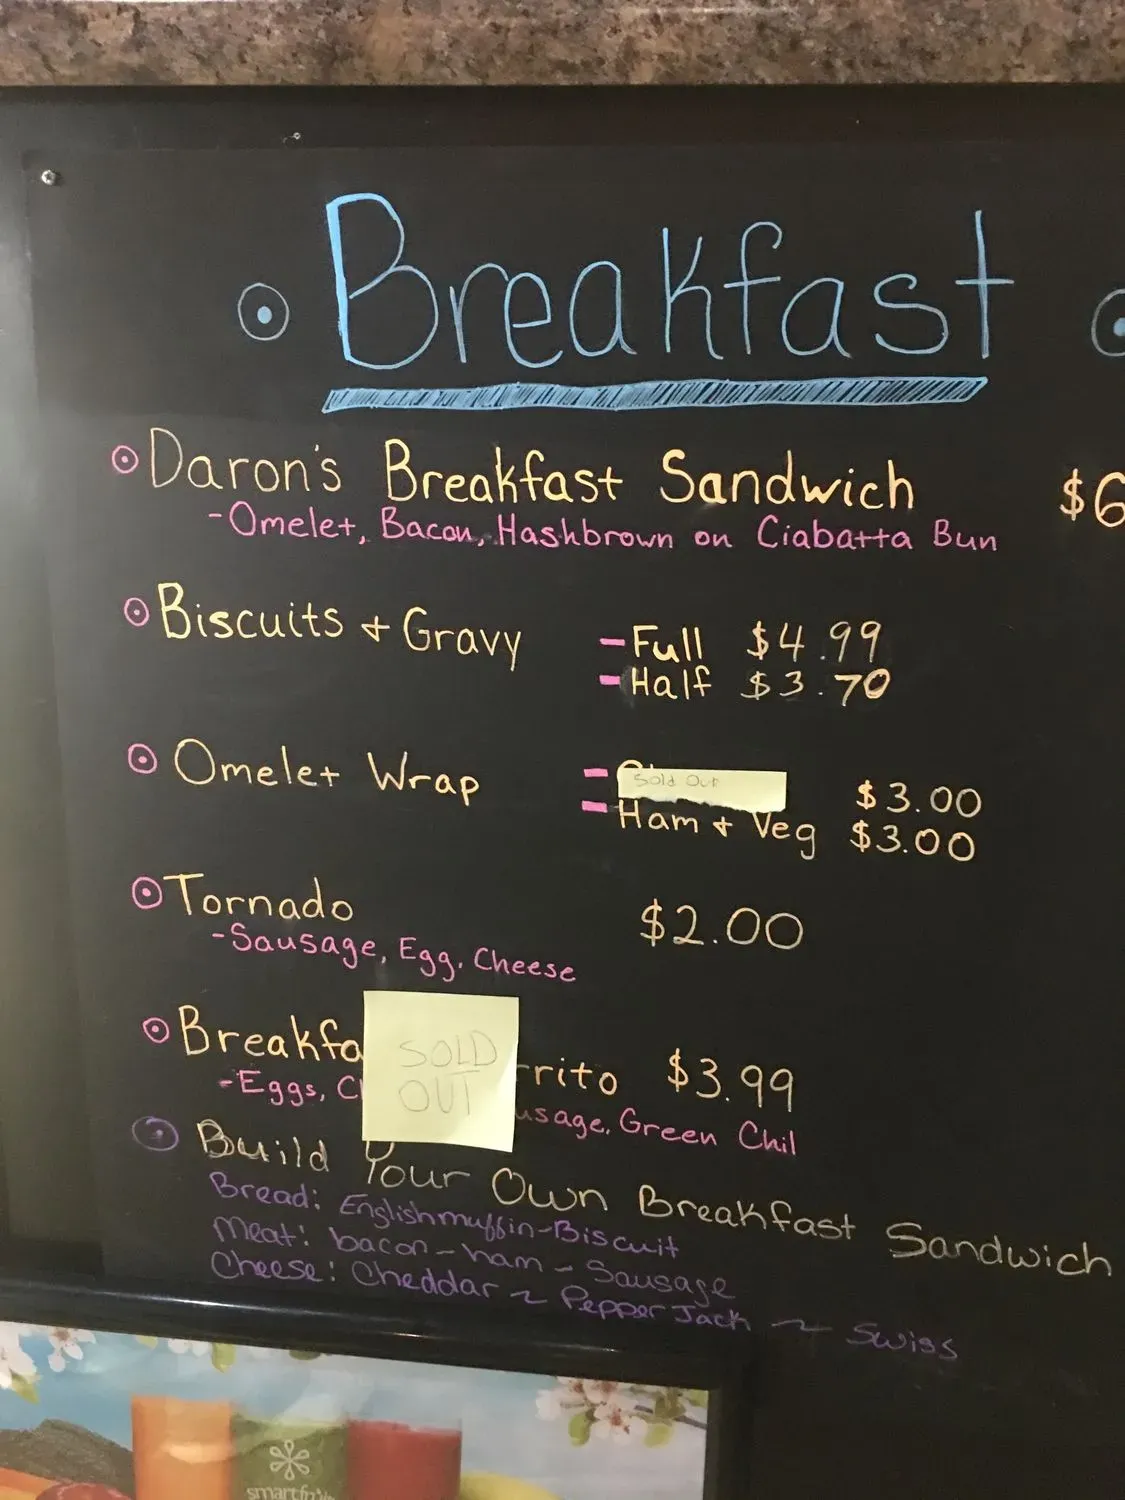 Breakfast
Daron's Breakfast Sandwich $6
-Omelet, Bacon, Hashbrown on Ciabatta Bun
Biscuits + Gravy -Full $4.99
-Half $3.70
Omelet Wrap - Sold Out $3.00
-Ham + Veg $3.00
Tornado $2.00
-Sausage, Egg, Cheese
Breakfa rrito $3.99
SOLD
OUT
-Eggs, Ch usage, Green Chil
Build Your Own Breakfast Sandwich
Bread: Englishmuffin-Biscuit
Meat: bacon-ham-Sausage
Cheese: Cheddar ~ Pepper Jack ~ Swiss